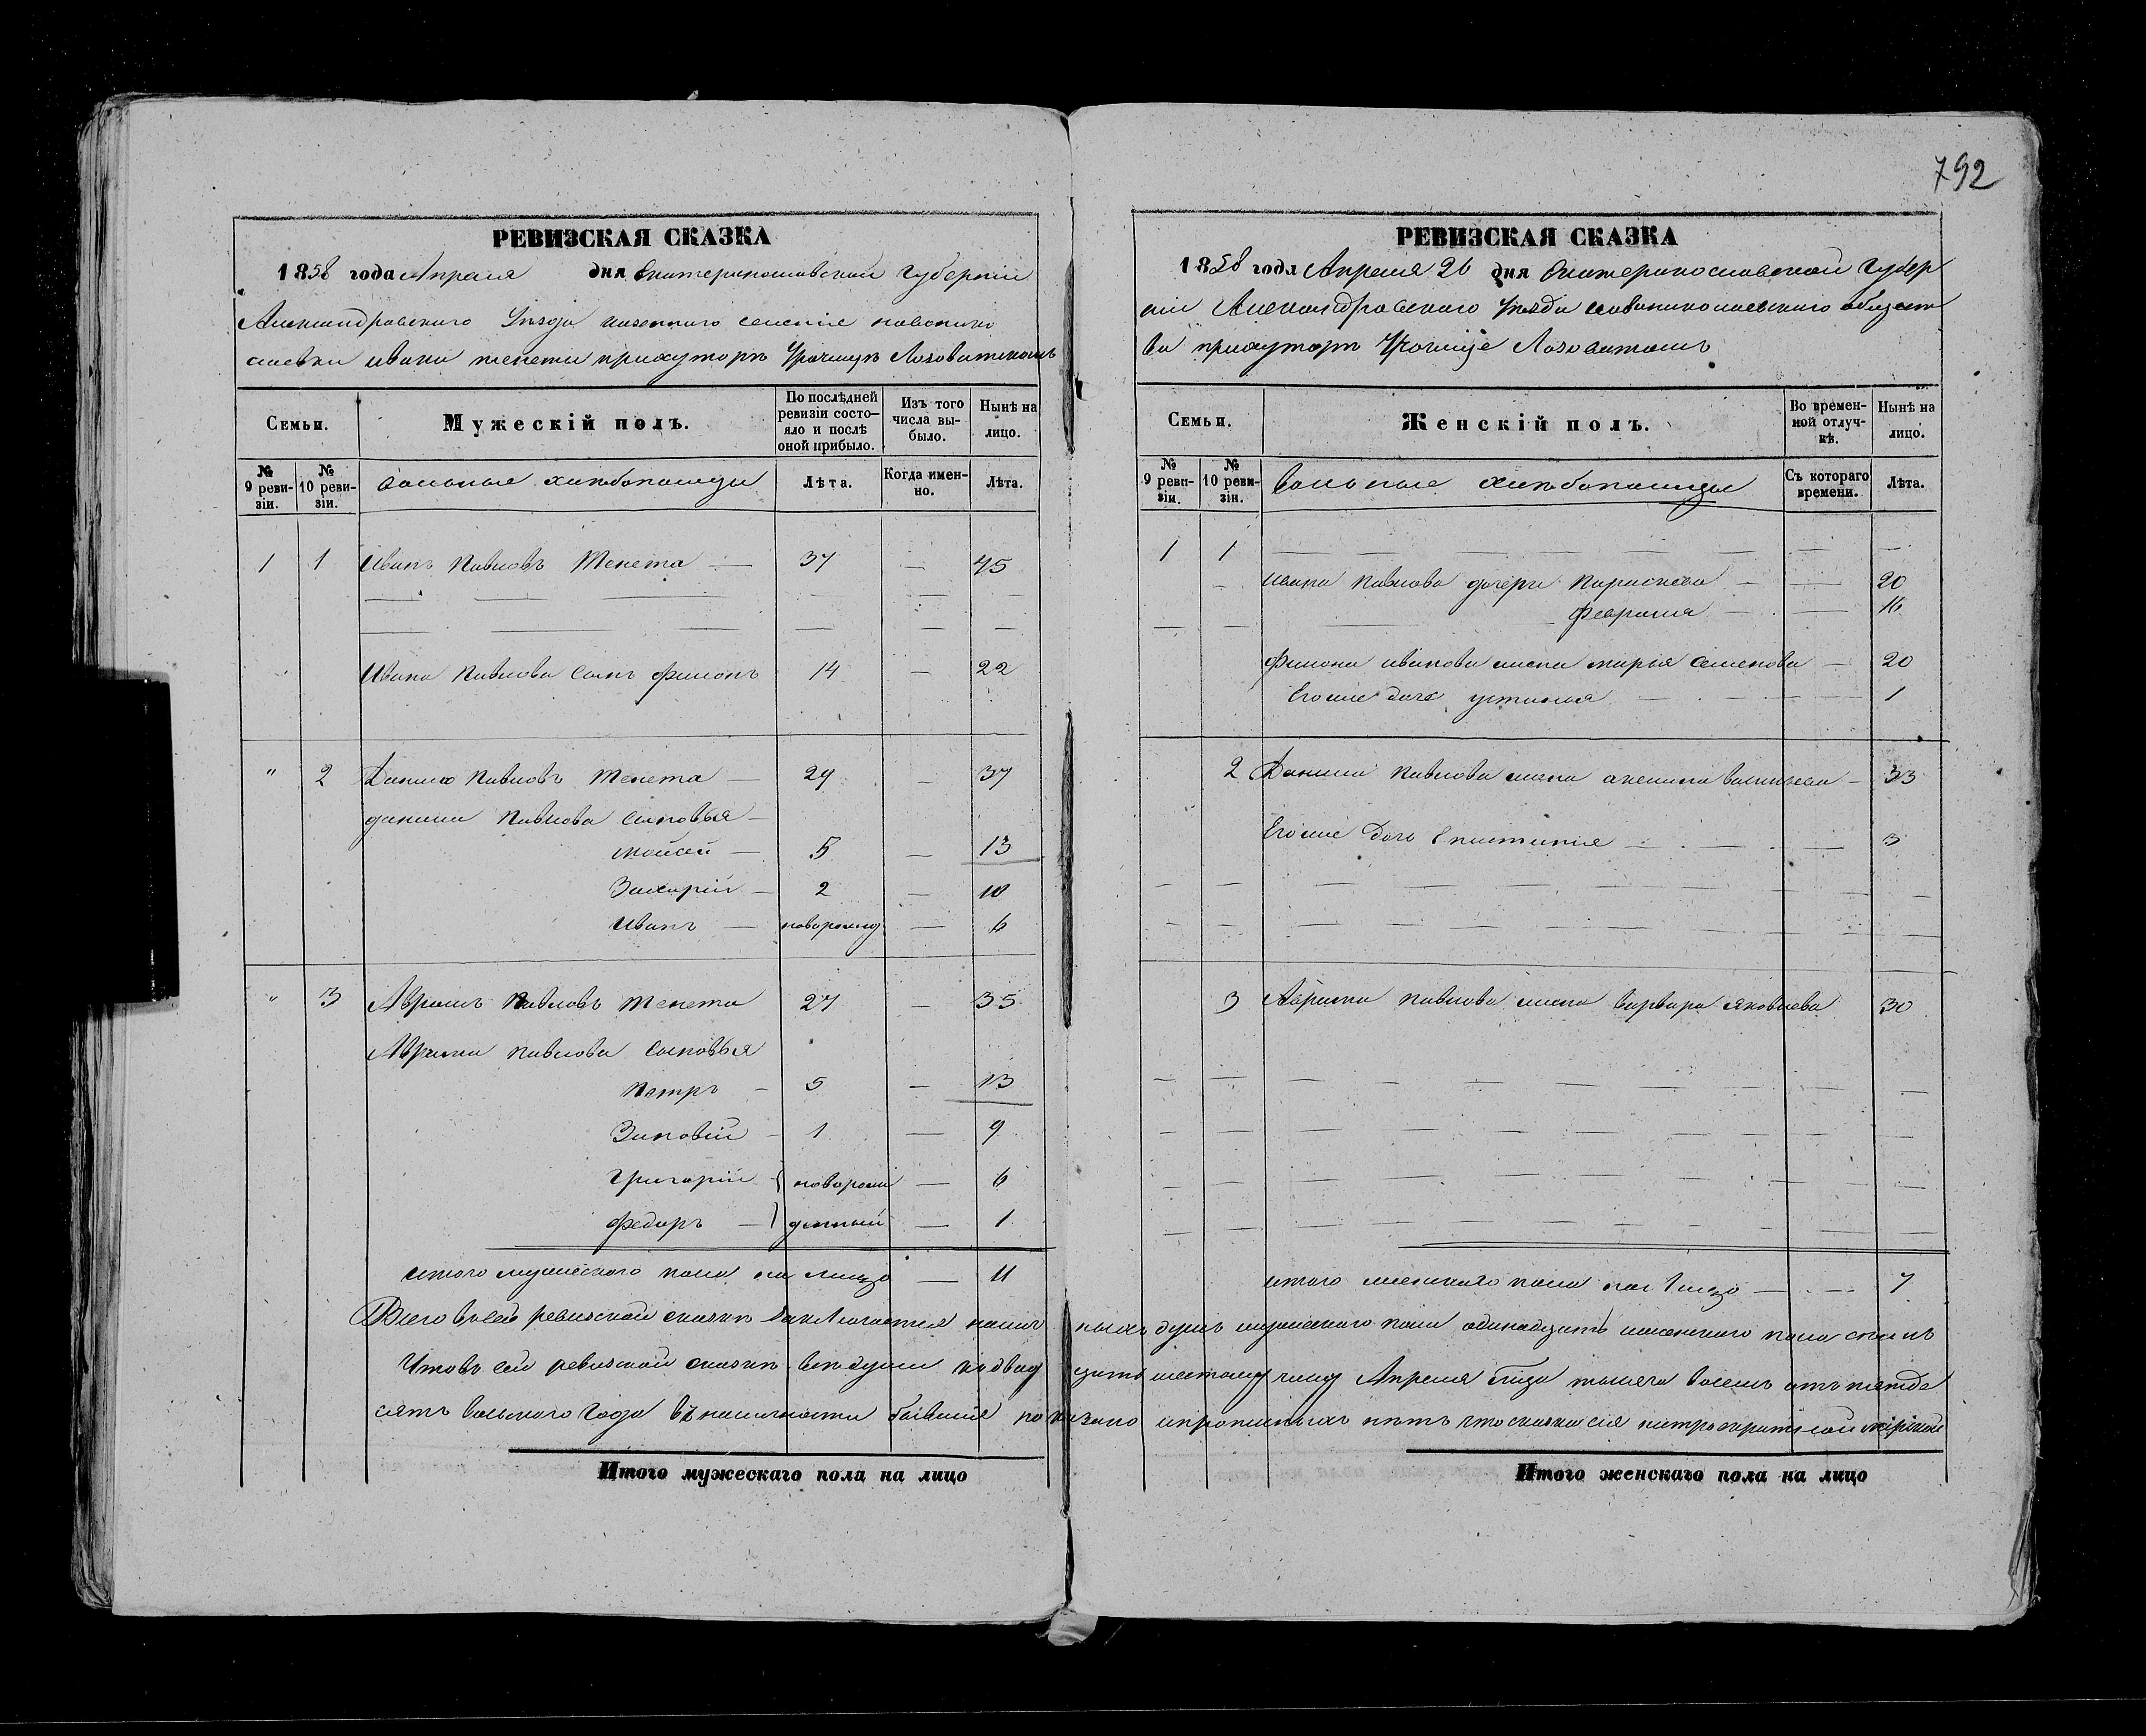 792
РЕВИЗСКАЯ СКАЗКА
1858 года Апреля дня Екатеринославской Губернии
Александровского Уезда казенного селенiе новонико
лаевки ивана тенети прихуторѣ Урочищѣ Лозоватскомъ
Семьи.
Мужескiй полъ.
По послѣдней ревизiи состо-
яло и послѣ оной прибыло.
Изъ того числа вы-
было.
Нынѣ на лицо.
№ 9 реви-
зiи.
№ 10 реви-
зiи.
вольные хлебопашцы
Лѣта.
Когда имен-
но.
Лѣта.
1 1 Иванъ Павловъ Тенета — 37 — 45
Ивана Павлова сынъ филонъ 14 — 22
" 2 Данило Павловъ Тенета — 29 — 37
данила Павлова сыновья —
мойсей — 5 — 13
Захарiй — 2 — 10
иванъ — новорожд — 6
" 3 Аврамъ Павловъ тенета 27 — 35
Аврама павлова сыновья
Петръ — 5 — 13
Зиновiй — 1 — 9
Григорiй — новорож — 6
федоръ — денный — 1
итого мужеского пола на лицо — 11
РЕВИЗСКАЯ СКАЗКА
1858 года Апреля 26 дня Екатеринославской Губер
нiи Александровского Уезда новониколаевского общест
ва прихуторѣ Урочище Лозоватомъ
Семьи.
Женскiй полъ.
Во времен-
ной отлуч-
кѣ.
Нынѣ на лицо.
№ 9 реви-
зiи.
№ 10 реви-
зiи.
вольные хлебопашцы
Съ котораго времени.
Лѣта.
1 1
ивана Павлова дочери Параскева — 20
феврония — 16
филона иванова жена марья семенова — 20
Его же дочь устинья — 1
2 Данила Павлова жена акелина васильева — 33
Его же дочь Епистинiя — 3
3 Аврама павлова жена варвара яковлева 30
итого женскаго пола на лицо — 7
Всего въсей ревизской сказкѣ заключается наличныхъ душъ мужеского пола одинадцать женского пола семь
Чтовъ сей ревизской сказкѣ вседуши подвадцать шестому числу Апреля тысяча восемь отъ пятьде
сятъ восьмого года въ наличности бывшие показано ипропыхъ нетъ что сказка сiя
Итого мужескаго пола на лицо
Итого женскаго пола на лицо